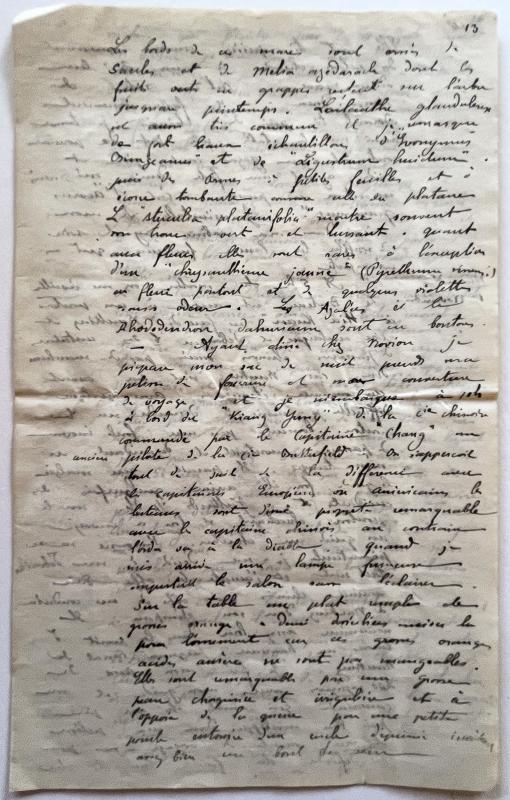 13
Les bords de ces mares sont ornés de
Saules et de Melia azedarach dont les
fruits verts en grappes restent sur l'arbre
jusqu'au printemps. L'ailanthe glanduleux
est aussi très commun et je remarque
de fort beaux échantillons d'"Evonymus
et de "Ligustrum lucidum"
puis des ormes à petites feuilles et à
écorce tombante comme celle du platane
Le "sterculia platanifolia" montre souvent
son tronc vert et luisant quant
aux fleurs elles sont rares à l'exception
d'un "chrysanthème jaune"
en fleur et de quelques violettes
sans odeur. Les Azalées et le
Rhododendron dahuricum sont en boutons.
— Ayant dîné chez Novion je
prépare mon sac de nuit prends ma
pelisse de fourrure et mon couverture
de voyage et je m'embarque à 10h
à bord du "Kiang Yung" de la Cie chinoise
commandé par le Capitaine Chang un
ancien pilote de la Cie On s'aperçoit
tout de suite de la différence avec
les capitaines Européens ou américains les
bateaux sont d'une propreté remarquable
avec le capitaine chinois au contraire
l'ordre va à la diable quand je
suis arrivé une lampe fumeuse
empestait le salon sans l'éclairer.
Sur la table un plat rempli de
grosses oranges à demi mises là
pour l'ornement car ces grosses oranges
acides amères ne sont pas mangeables.
Elles sont remarquables par une grosse
peau chagrinée et irrégulière et à
l'opposé de la queue par une petite
pointe entourée d'un cercle déprimé
assez bien un bout de sein